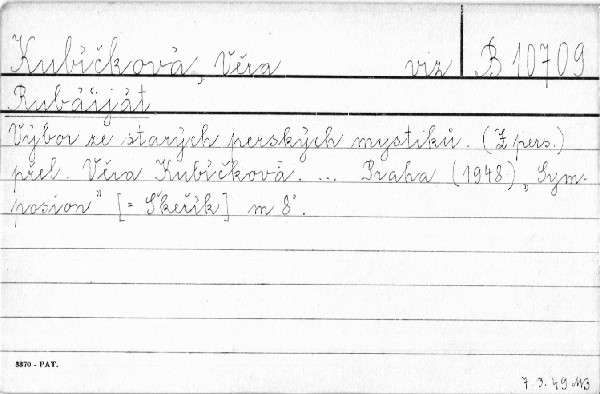 Kubíčková, Věra viz B 10709
Rubá'iját
Výbor ze starých perských mystiků. (Z pers.)
přel. Věra Kubíčková. ... Praha (1948) „Sym-
posion" [= Škeřík] m 8°.
3370 - PAT.
7. 3. 49